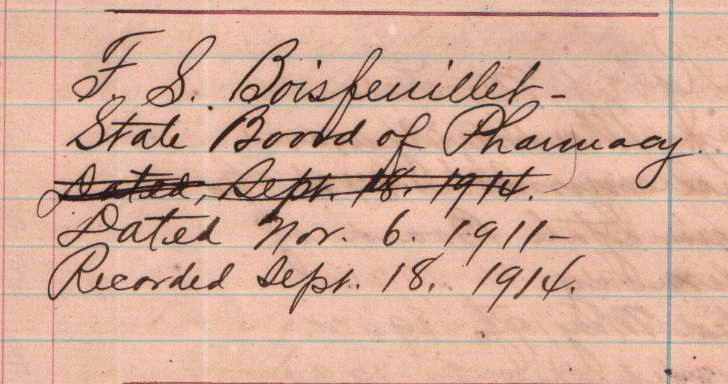 F. S. Boisfeuillet -
State Board of Pharmacy.
Dated, Sept. 18. 1914.
Dated Nov. 6. 1911-
Recorded Sept. 18, 1914.